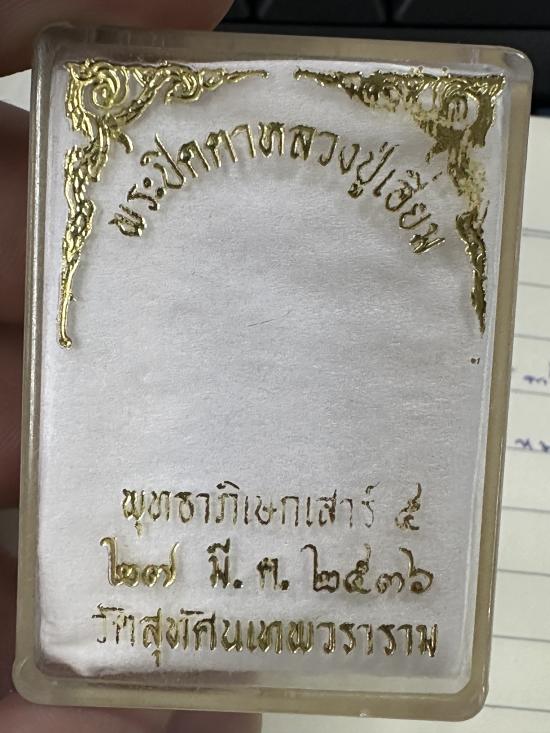 พระปิดตาหลวงปู่เอี่ยม
พุทธาภิเษกเสาร์ ๕
๒๗ มี.ค. ๒๕๓๖
วัดสุทัศนเทพวราราม